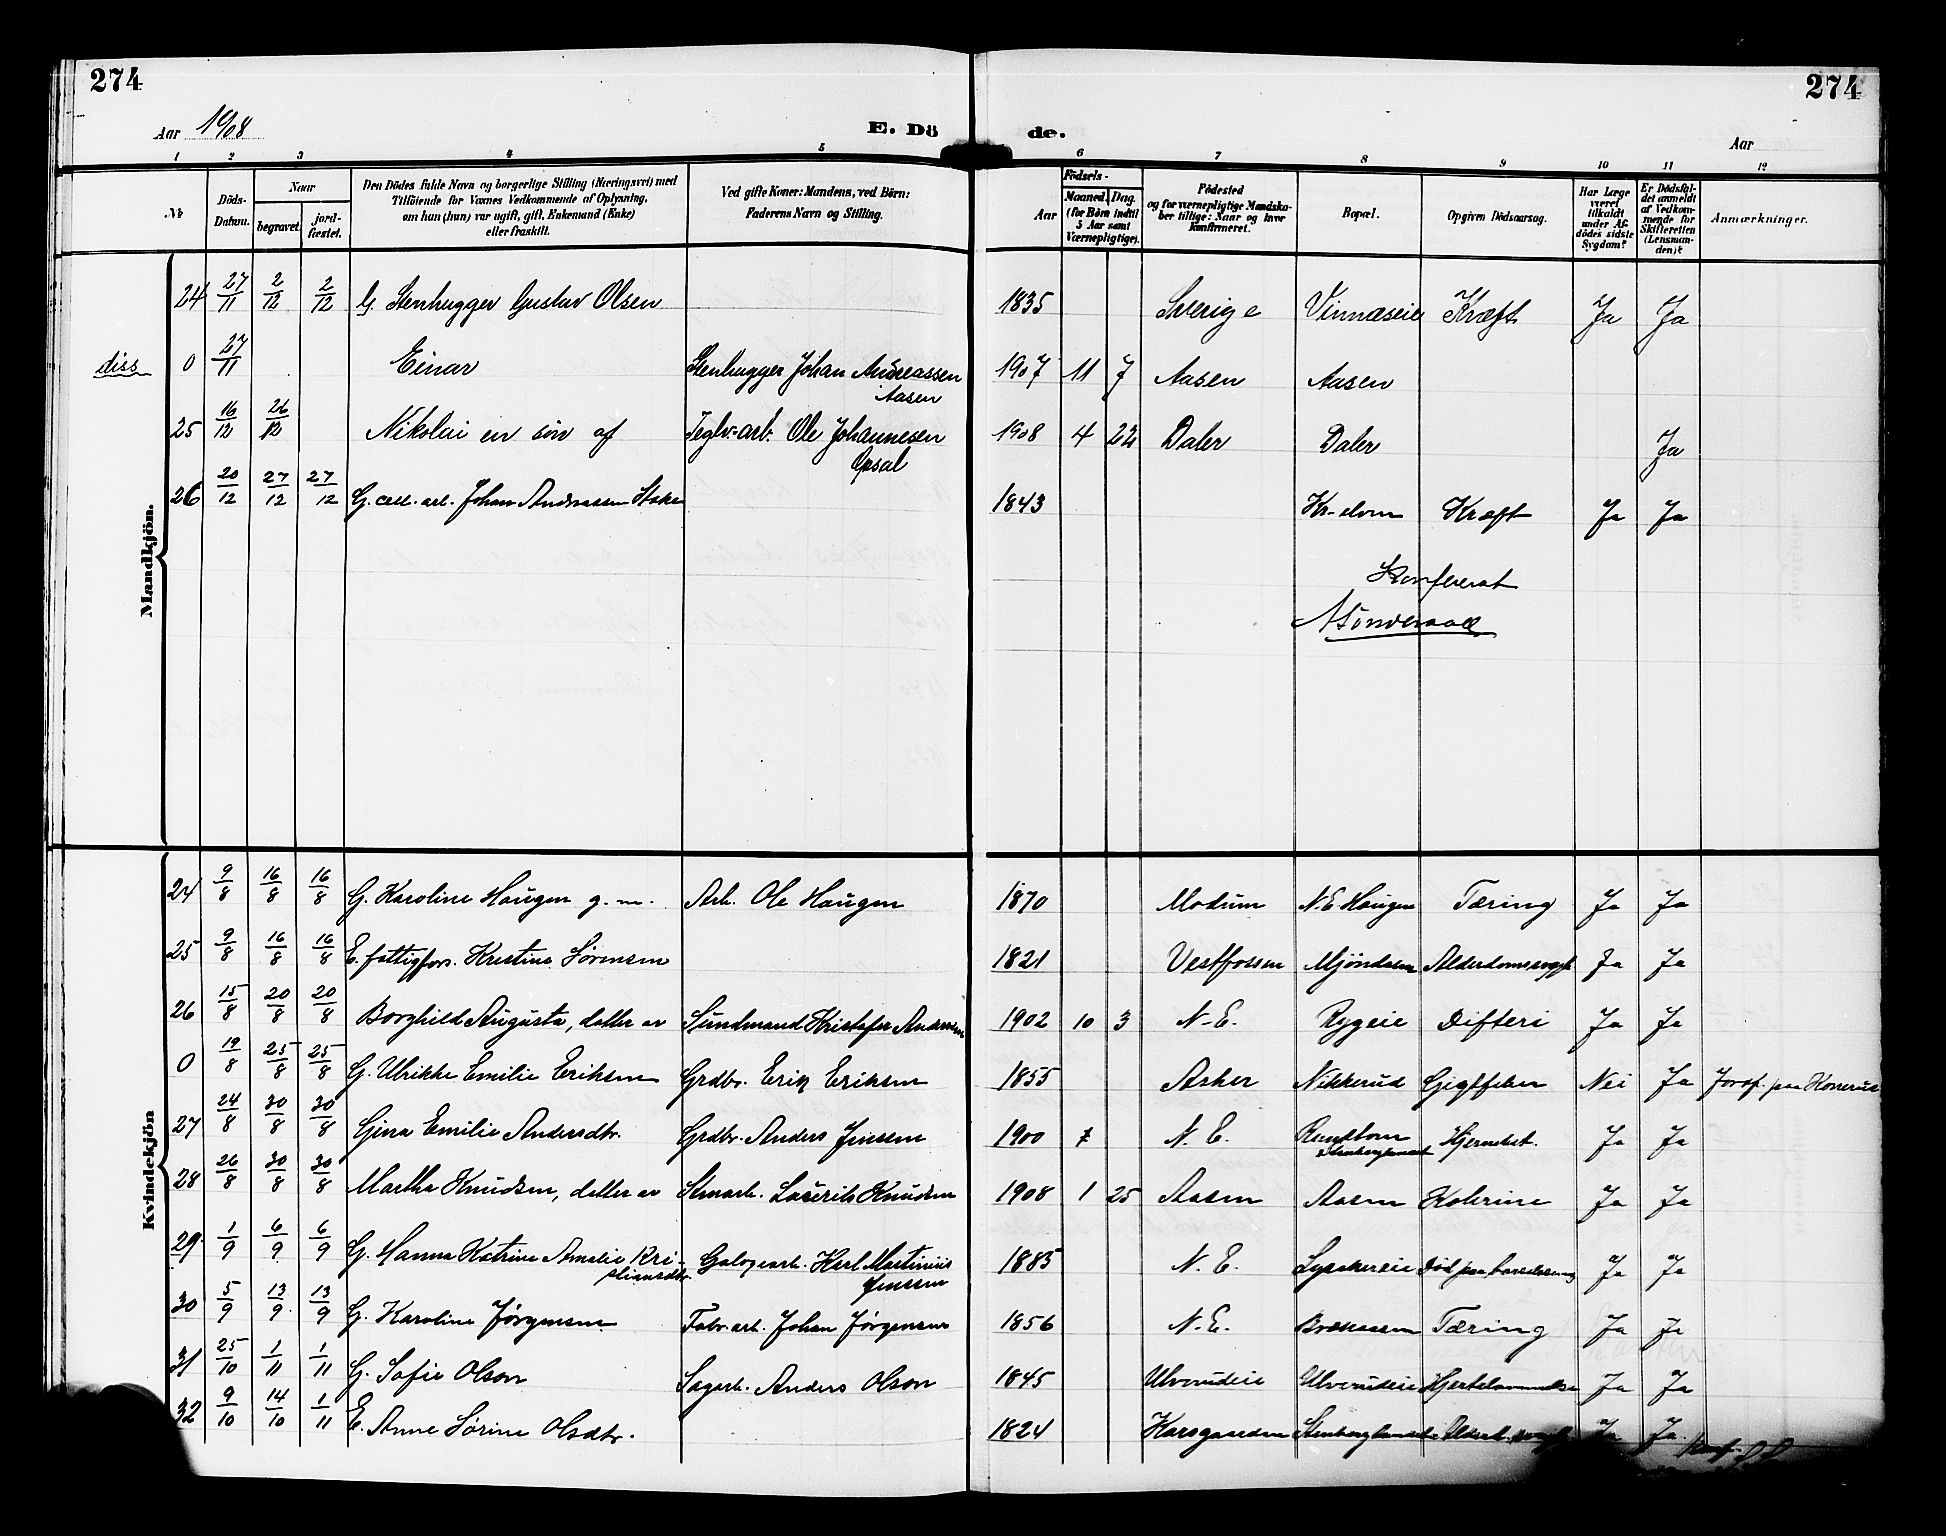 274
274
Aar 1908
E. Dö
de.
Aar
1 2 3 4 5 6 7 8 9 10 11 12
No
Döds-Datum.
Naar
begravet.
jord-fæstet.
Den Dödes fulde Navn og borgerlige Stilling (Næringsvei) med
Tilföiende for Vaxnes Vedkommende af Oplysning,
om han (hun) var ugift, gift, Enkemand (Enke)
eller fraskilt.
Ved gifte Koner: Mandens, ved Börn:
Faderens Navn og Stilling.
Födsels-
Aar
Maaned. Dag.
(for Börn indtil
5 Aar samt
Værnepligtige).
Födested
og for værnepligtige Mandska-
ber tillige: Naar og hvor
konfirmeret.
Bopæl.
Opgiven Dödsaarsag.
Har Læge
været
tilkaldt
under Af-
dödes sidste
Sygdom?
Er Dödsfal-
det anmeldt
af Vedkom-
mende for
Skifteretten
(Lensman-
den)?
Anmærkninger.
Mandkjön.
24 27/11 2/12 2/12 G. Stenhugger Gustav Olsen 1835 Sverige Vinnæseie Kræft Ja Ja
diss 0 27/11 Einar Stenhugger Johan Andreassen Aasen 1907 11 7 Aasen Aasen
25 16/12 26/12 Nikolai en søn af Teglv.-arb. Ole Johannesen Opsal 1908 4 22 Daler Daler Ja
26 20/12 27/12 27/12 G. cell. arb. Johan Andreassen Stake 1843 Kr-elven Kræft Ja Ja
Konfererat
Kvindekjön
24 9/8 16/8 16/8 G. Karoline Haugen g. m. Arb. Ole Haugen 1870 Modum N. E Haugen Tæring Ja Ja
25 9/8 16/8 16/8 E. fattigfors. Kristine Sørensen 1821 Vestfossen Mjöndalen Alderdomssvagh Ja Ja
26 15/8 20/8 20/8 Borghild Augusta, datter av Sundmand Kristofer Andersen 1902 10 3 N-E. Rygeie Difteri Ja Ja
0 19/8 25/8 25/8 G. Ulrikke Emilie Eriksen Grdbr. Erik Eriksen 1855 Asker Nikkerud Gigtfeber Nei Ja Jordf. paa Konerud
27 24/8 30/8 30/8 Gina Emilie Andersdtr. Grdbr. Anders Jenssen 1900 7 N. E. Hjernebet. Ja Ja
28 26/8 30/8 30/8 Martha Knudsen, datter av Stenarb. Laurits Knudsen 1908 1 25 Aasen Aasen Kolerine Ja Ja
29 1/9 6/9 6/9 G. Hanna Katrine Amalie Kri-stiansdtr. Galogearb. Karl Martinius Jenssen 1885 N. E. Lysakereie Død paa barselseng Ja Ja
30 5/9 13/9 13/9 G. Karoline Jørgensen Fabr. arb. Johan Jørgensen 1856 N. E. Tæring Ja Ja
31 25/10 1/11 1/11 G. Sofie Olson Sagarb. Anders Olson 1845 Ulverudeie Ulverudeie Hjertelammelse Ja Ja
32 9/10 14/10 1/11 E. Anne Sørine Olsdtr. 1824 Ja Ja